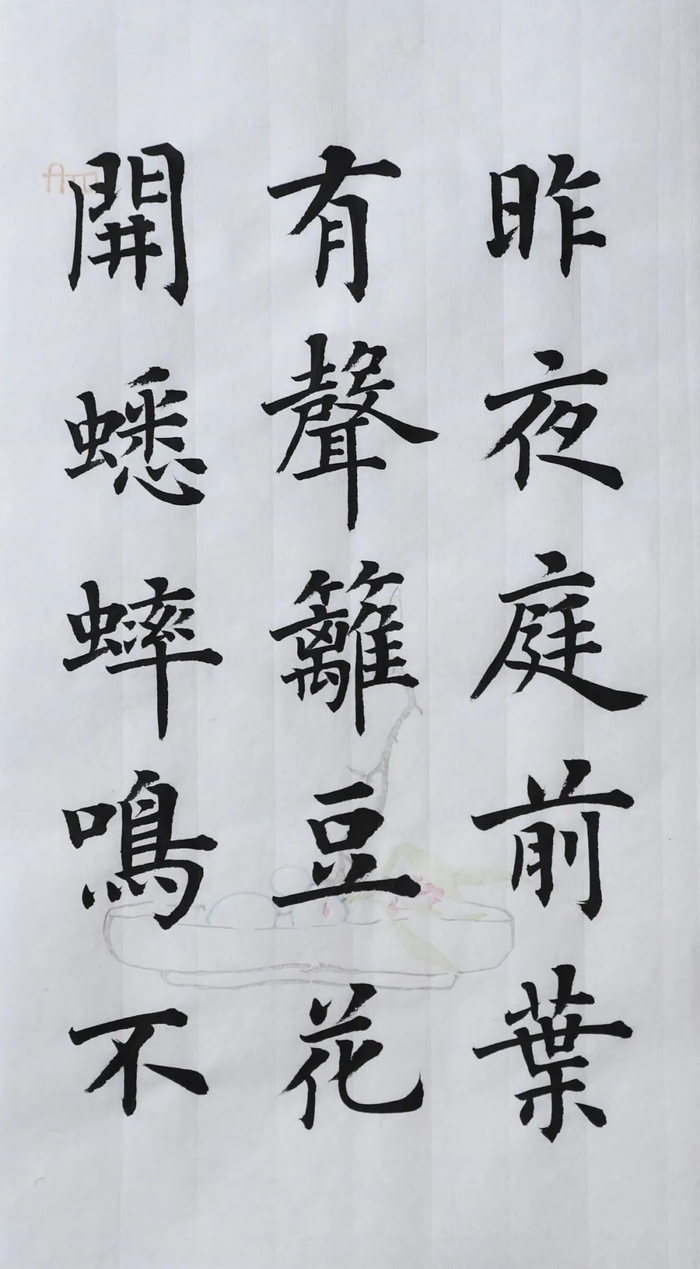 昨夜庭前葉
有聲籬豆花
開蟋蟀鳴不